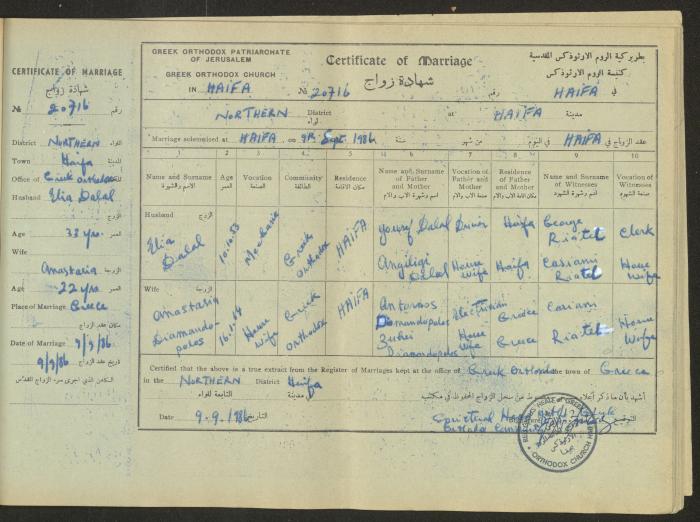 CERTIFICATE OF MARRIAGE
شهادة زواج
№ 20716 رقم
District NORTHERN اللواء
Town Haifa المدينة
Office of Greek Orthodox
Husband Elia Dalal
الزوج
Age 33 yrs. العمر
Wife
Anastasia الزوجة
Age 22 yrs العمر
Place of Marriage Greece
مكان عقد الزواج
Date of Marriage 9/9/86
9/9/86 تاريخ عقد الزواج
GREEK ORTHODOX PATRIARCHATE
OF JERUSALEM
GREEK ORTHODOX CHURCH
IN HAIFA
Certificate of Marriage
شهادة زواج
№ 20716 رقم
بطريركية الروم الارثوذكس المقدسية
كنيسة الروم الارثوذكس
HAIFA في
NORTHERN District لواء at HAIFA مدينة
Marriage solemnized at HAIFA, on 9th Sept. 1986 سنة من شهر في اليوم HAIFA عقد الزواج في
1 2 3 4 5 6 7 8 9 10
Name and Surname
الاسم والشهرة
Age
العمر
Vocation
الصنعة
Community
الطائفة
Residence
مكان الاقامة
Name and Surname of Father and Mother
اسم وشهرة الاب والام
Vocation of Father and Mother
صنعة الاب والام
Residence of Father and Mother
Name and Surname of Witnesses
اسم وشهرة الشهود
Vocation of Witnesses
صنعة الشهود
Husband الزوج
Elia Dalal
10.10.53
Mechanic
Greek Orthodox
HAIFA
Yousef Dalal Driver Haifa George Riatel Clerk
Angiligi Dalal House wife Haifa Cariami Riatel House wife
Wife الزوجة
Anastasia Diamandopolos
16.1.64
House wife
Greek Orthodox
HAIFA
Antonaos Diamandopolos Electrician Greece Cariami
Diamandopolos House wife Greece Riatel House Wife
Certified that the above is a true extract from the Register of Marriages kept at the office of Greek Orthodox the town of Greece
in the NORTHERN District Haifa
التابعة للواء مدينة
أشهد بأن ما ذكر أعلاه
Date 9.9.1986 التاريخ
ORTHODOX CHURCH